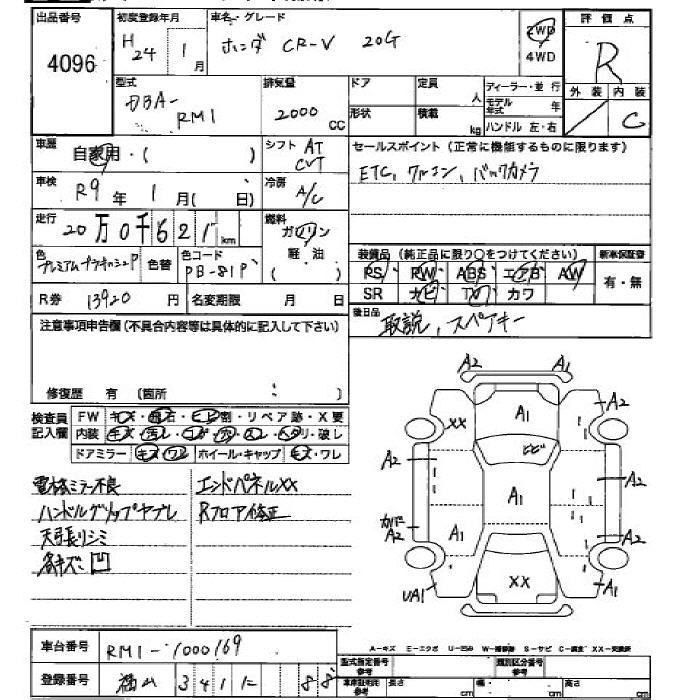 出品番号 初度登録年月 車名・グレード 評価点
4096 H24年 1月 ホンダ CR-V 20G 2WD 4WD R
型式 排気量 ドア 定員 ディーラー・並行 外装 内装
DBA-RM1 2000 CC 人 モデル年式 年 / C
形状 積載 kg ハンドル 左・右
車歴 自家用・( ) シフト AT CVT セールスポイント (正常に機能するものに限ります)
車検 R9年 1月( 日) 冷房 A/C ETC, ワンコン, バックカメラ
走行 20万0千621km 燃料 ガソリン 軽・油 ( )
色 色替 色コード PB-81P 装備品 (純正品に限り○をつけてください) 新車保証書
PS PW ABS エアB AW 有・無
R券 13920円 名変期限 月 日 SR ナビ TV カワ
注意事項申告欄 (不具合内容等は具体的に記入して下さい) 後日品 取説, スペアキー
修復歴 有 (箇所 : )
検査員記入欄 FW キズ・飛石・ヒビ割・リペア跡・X要
内装 キズ・汚レ・コゲ・穴・スレ・ヘタリ・破レ
ドアミラー キズ・ワレ ホイール・キャップ キズ・ワレ
電格ミラー不良 エンドパネルXX
ハンドルグリップヤブレ Rフロア修正
天張リシミ
各キズ凹
A2 A1
XX A1 A2
ヒビ
A2 A1 A2
カバーA2 A1 A2
UA1 XX A1
A-キズ E-エクボ U-凹み W-補修跡 S-サビ C-腐食 XX-交換済
車台番号 RM1-1000169 型式指定番号 参考 類別区分番号 参考
登録番号 福山 341 に 88 車庫証明用 参考 長さ cm 幅 cm 高さ cm